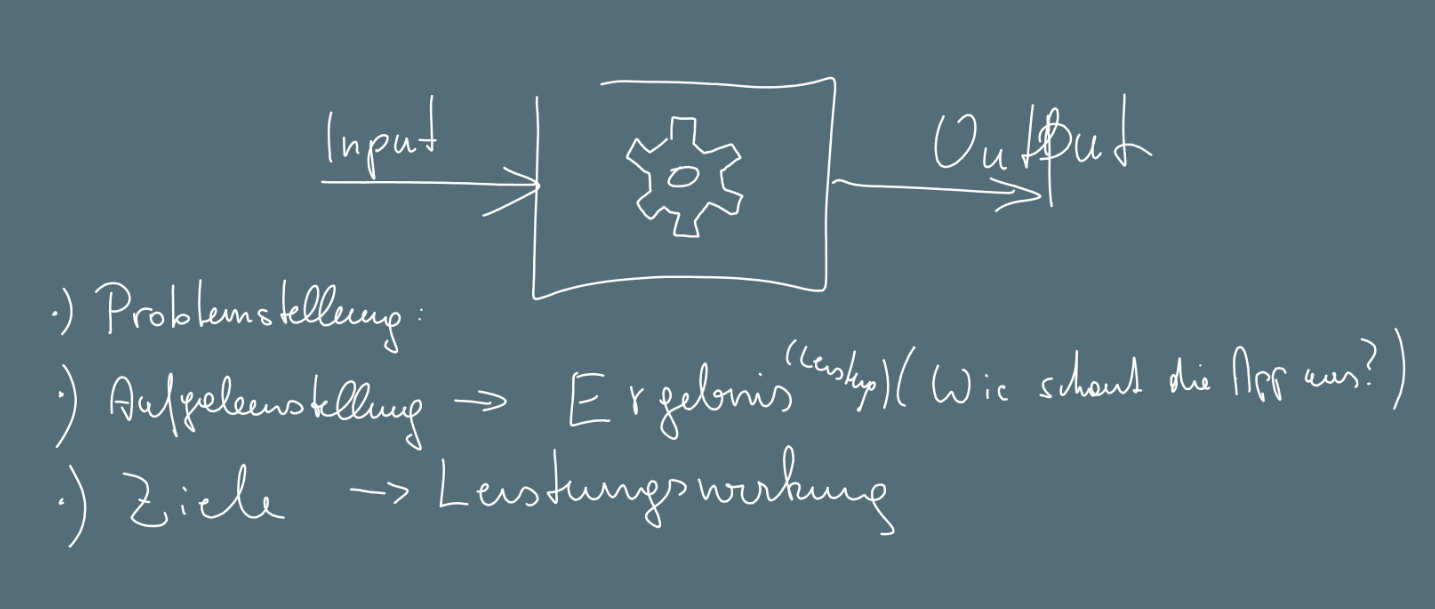 Input
Output
.) Problemstellung:
.) Aufgabenstellung → Ergebnis (Leistung) (Wie schaut die App aus?)
.) Ziele → Leistungswirkung